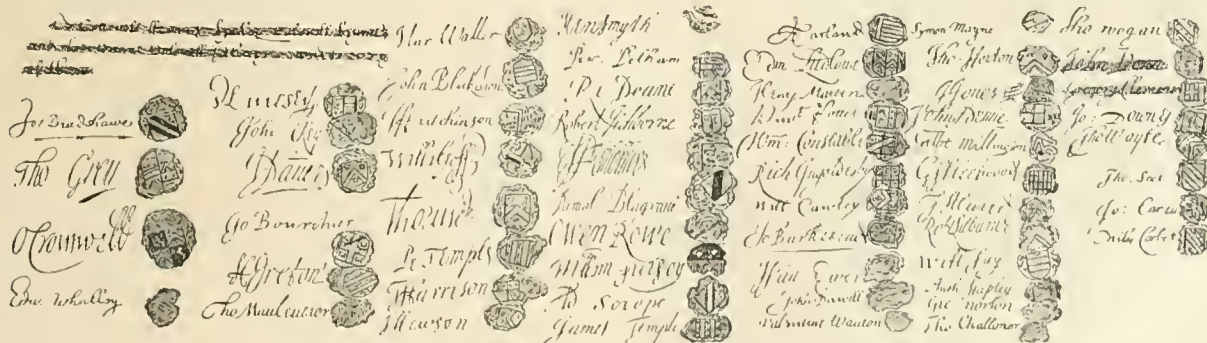 Jo Bradshawe
Tho Grey
O Cromwell
Edw Whalley
M Livesey
John Okey
J Danvers
Jo Bourchier
H Ireton
Tho Mauleverer
Har Waller
John Blakiston
J Hutchinson
Willi Goffe
Pe Temple
T Harrison
J Hewson
Hen Smyth
Per Pelham
Ri Deane
Robert Tichborne
Daniel Blagrave
Owen Rowe
Willm Purefoy
Ad Scrope
James Temple
A Garland
Edm Ludlowe
Henry Marten
Vinct Potter
Wm: Constable
Rich Ingoldesby
Will Cawley
Jo Barkestead
Isaa Ewer
John Dixwell
Valentine Wauton
Symon Mayne
Tho Horton
J Jones
John Penne
Gilbt Millington
G Fleetwood
J Alured
Robt Lilburne
Will Say
Anth Stapley
Gre Norton
Tho Challoner
Tho Wogan
John Venn
Gregory Clement
Jo: Downes
Tho Wayte
Tho. Scot
Jo: Carew
Miles Corbet